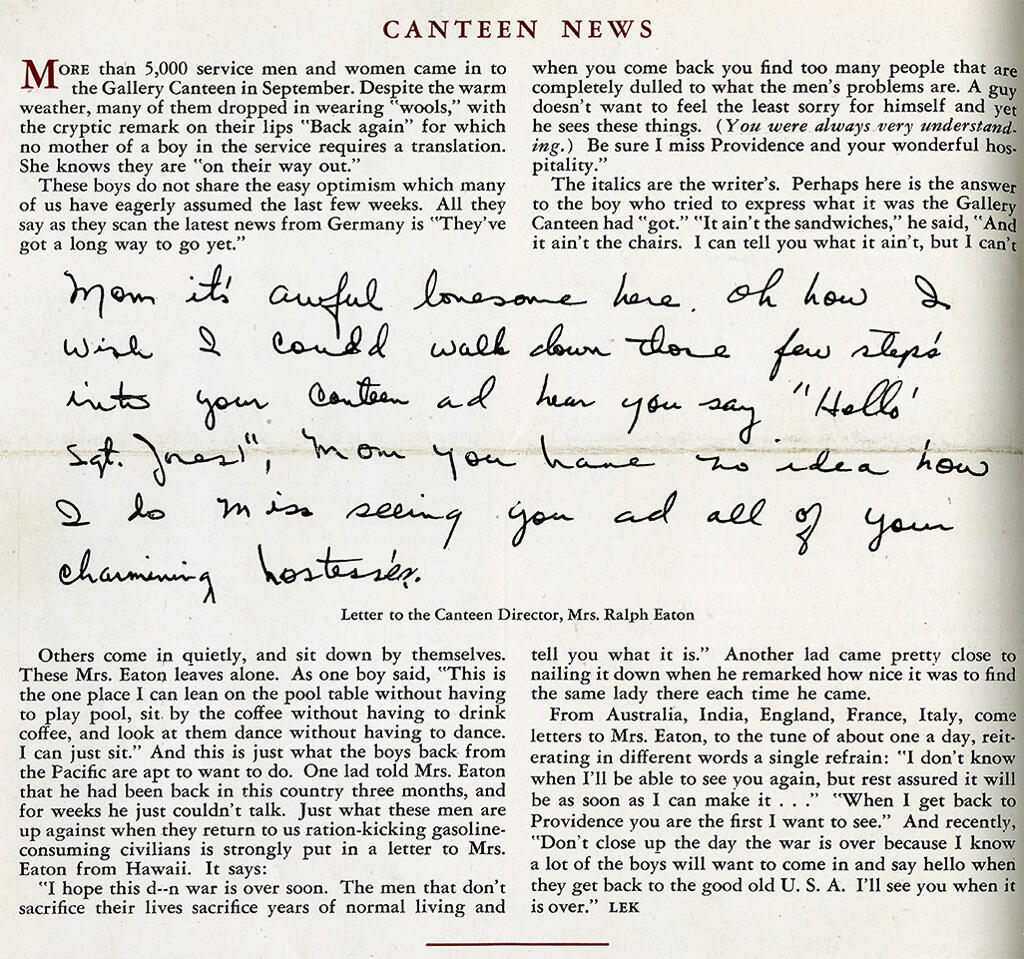 CANTEEN NEWS
MORE than 5,000 service men and women came in to
the Gallery Canteen in September. Despite the warm
weather, many of them dropped in wearing "wools," with
the cryptic remark on their lips "Back again" for which
no mother of a boy in the service requires a translation.
She knows they are "on their way out."
These boys do not share the easy optimism which many
of us have eagerly assumed the last few weeks. All they
say as they scan the latest news from Germany is "They've
got a long way to go yet."
Mom it's awful lonesome here. Oh how I
wish I could walk down those few step's
into your Canteen ad hear you say "Hello'
Sgt. Jones!", Mom you have no idea how
I do miss seeing you ad all of your
charmining hostess'es.
Letter to the Canteen Director, Mrs. Ralph Eaton
Others come in quietly, and sit down by themselves.
These Mrs. Eaton leaves alone. As one boy said, "This is
the one place I can lean on the pool table without having
to play pool, sit by the coffee without having to drink
coffee, and look at them dance without having to dance.
I can just sit." And this is just what the boys back from
the Pacific are apt to want to do. One lad told Mrs. Eaton
that he had been back in this country three months, and
for weeks he just couldn't talk. Just what these men are
up against when they return to us ration-kicking gasoline-
consuming civilians is strongly put in a letter to Mrs.
Eaton from Hawaii. It says:
"I hope this d--n war is over soon. The men that don't
sacrifice their lives sacrifice years of normal living and
when you come back you find too many people that are
completely dulled to what the men's problems are. A guy
doesn't want to feel the least sorry for himself and yet
he sees these things. (You were always very understand-
ing.) Be sure I miss Providence and your wonderful hos-
pitality."
The italics are the writer's. Perhaps here is the answer
to the boy who tried to express what it was the Gallery
Canteen had "got." "It ain't the sandwiches," he said, "And
it ain't the chairs. I can tell you what it ain't, but I can't
tell you what it is." Another lad came pretty close to
nailing it down when he remarked how nice it was to find
the same lady there each time he came.
From Australia, India, England, France, Italy, come
letters to Mrs. Eaton, to the tune of about one a day, reit-
erating in different words a single refrain: "I don't know
when I'll be able to see you again, but rest assured it will
be as soon as I can make it . . ." "When I get back to
Providence you are the first I want to see." And recently,
"Don't close up the day the war is over because I know
a lot of the boys will want to come in and say hello when
they get back to the good old U. S. A. I'll see you when it
is over." LEK